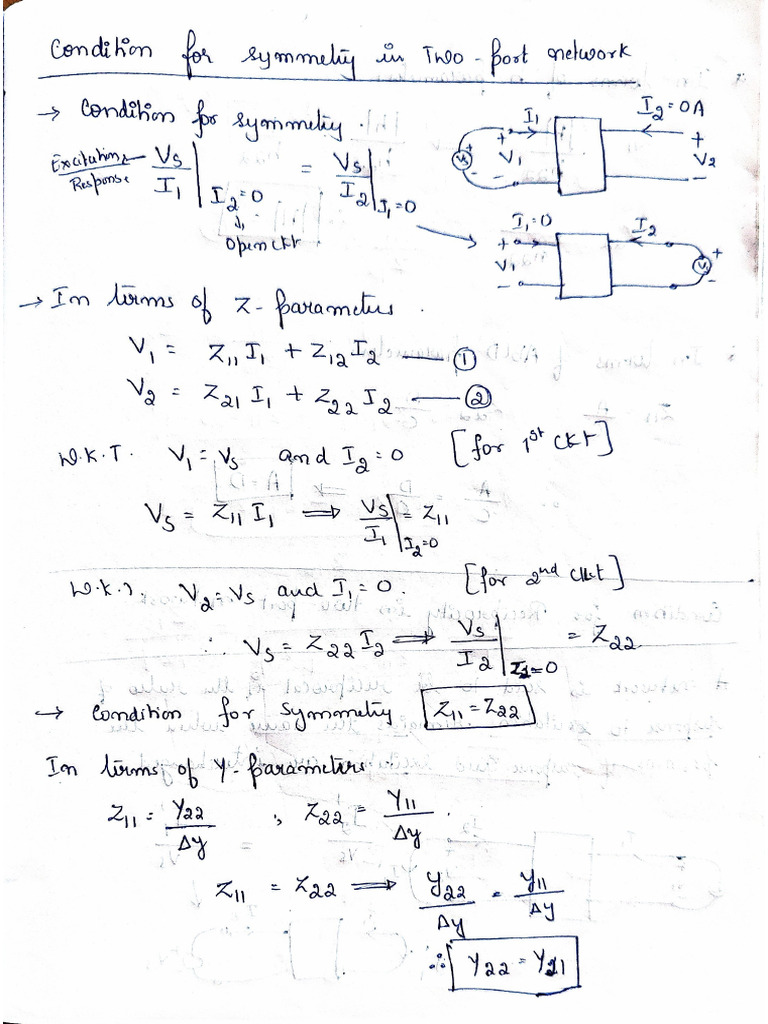 Condition for symmetry in Two-port network
→ Condition for symmetry.
Excitation / Response → Vs/I1 | I2=0 = Vs/I2 | I1=0
↓
open ckt
I1 I2=0A
Vs + V1 - + V2 -
I1=0 I2
+ V1 - Vs + -
→ In terms of Z-parameters.
V1 = Z11 I1 + Z12 I2 — ①
V2 = Z21 I1 + Z22 I2 — ②
W.K.T. V1 = Vs and I2 = 0 [for 1st ckt]
Vs = Z11 I1 ⟹ Vs/I1 | I2=0 = Z11
W.K.T V2 = Vs and I1 = 0. [for 2nd ckt]
∴ Vs = Z22 I2 ⟹ Vs/I2 | I1=0 = Z22
→ Condition for symmetry Z11 = Z22
In terms of Y-parameters
Z11 = Y22/Δy ; Z22 = Y11/Δy.
Z11 = Z22 ⟹ Y22/Δy = Y11/Δy
∴ Y22 = Y11